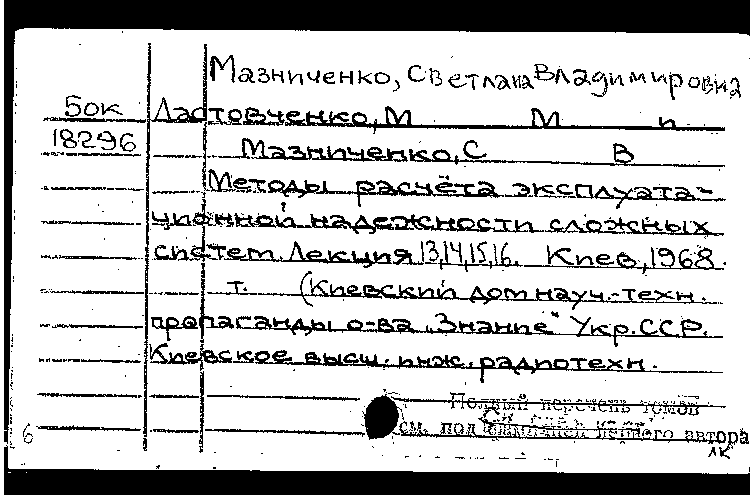 Мазниченко, Светлана Владимировна
5ок Ластовченко, М М и
18296 Мазниченко, С В
Методы расчёта эксплуата-
ционной надежности сложных
систем. Лекция 13,14,15,16. Киев, 1968.
т. (Киевский дом науч.-техн.
пропаганды о-ва „Знание" Укр.ССР.
Киевское высш. инж. радиотехн.
Полный перечень томов
6 см. под фамилией первого автора
ЛК